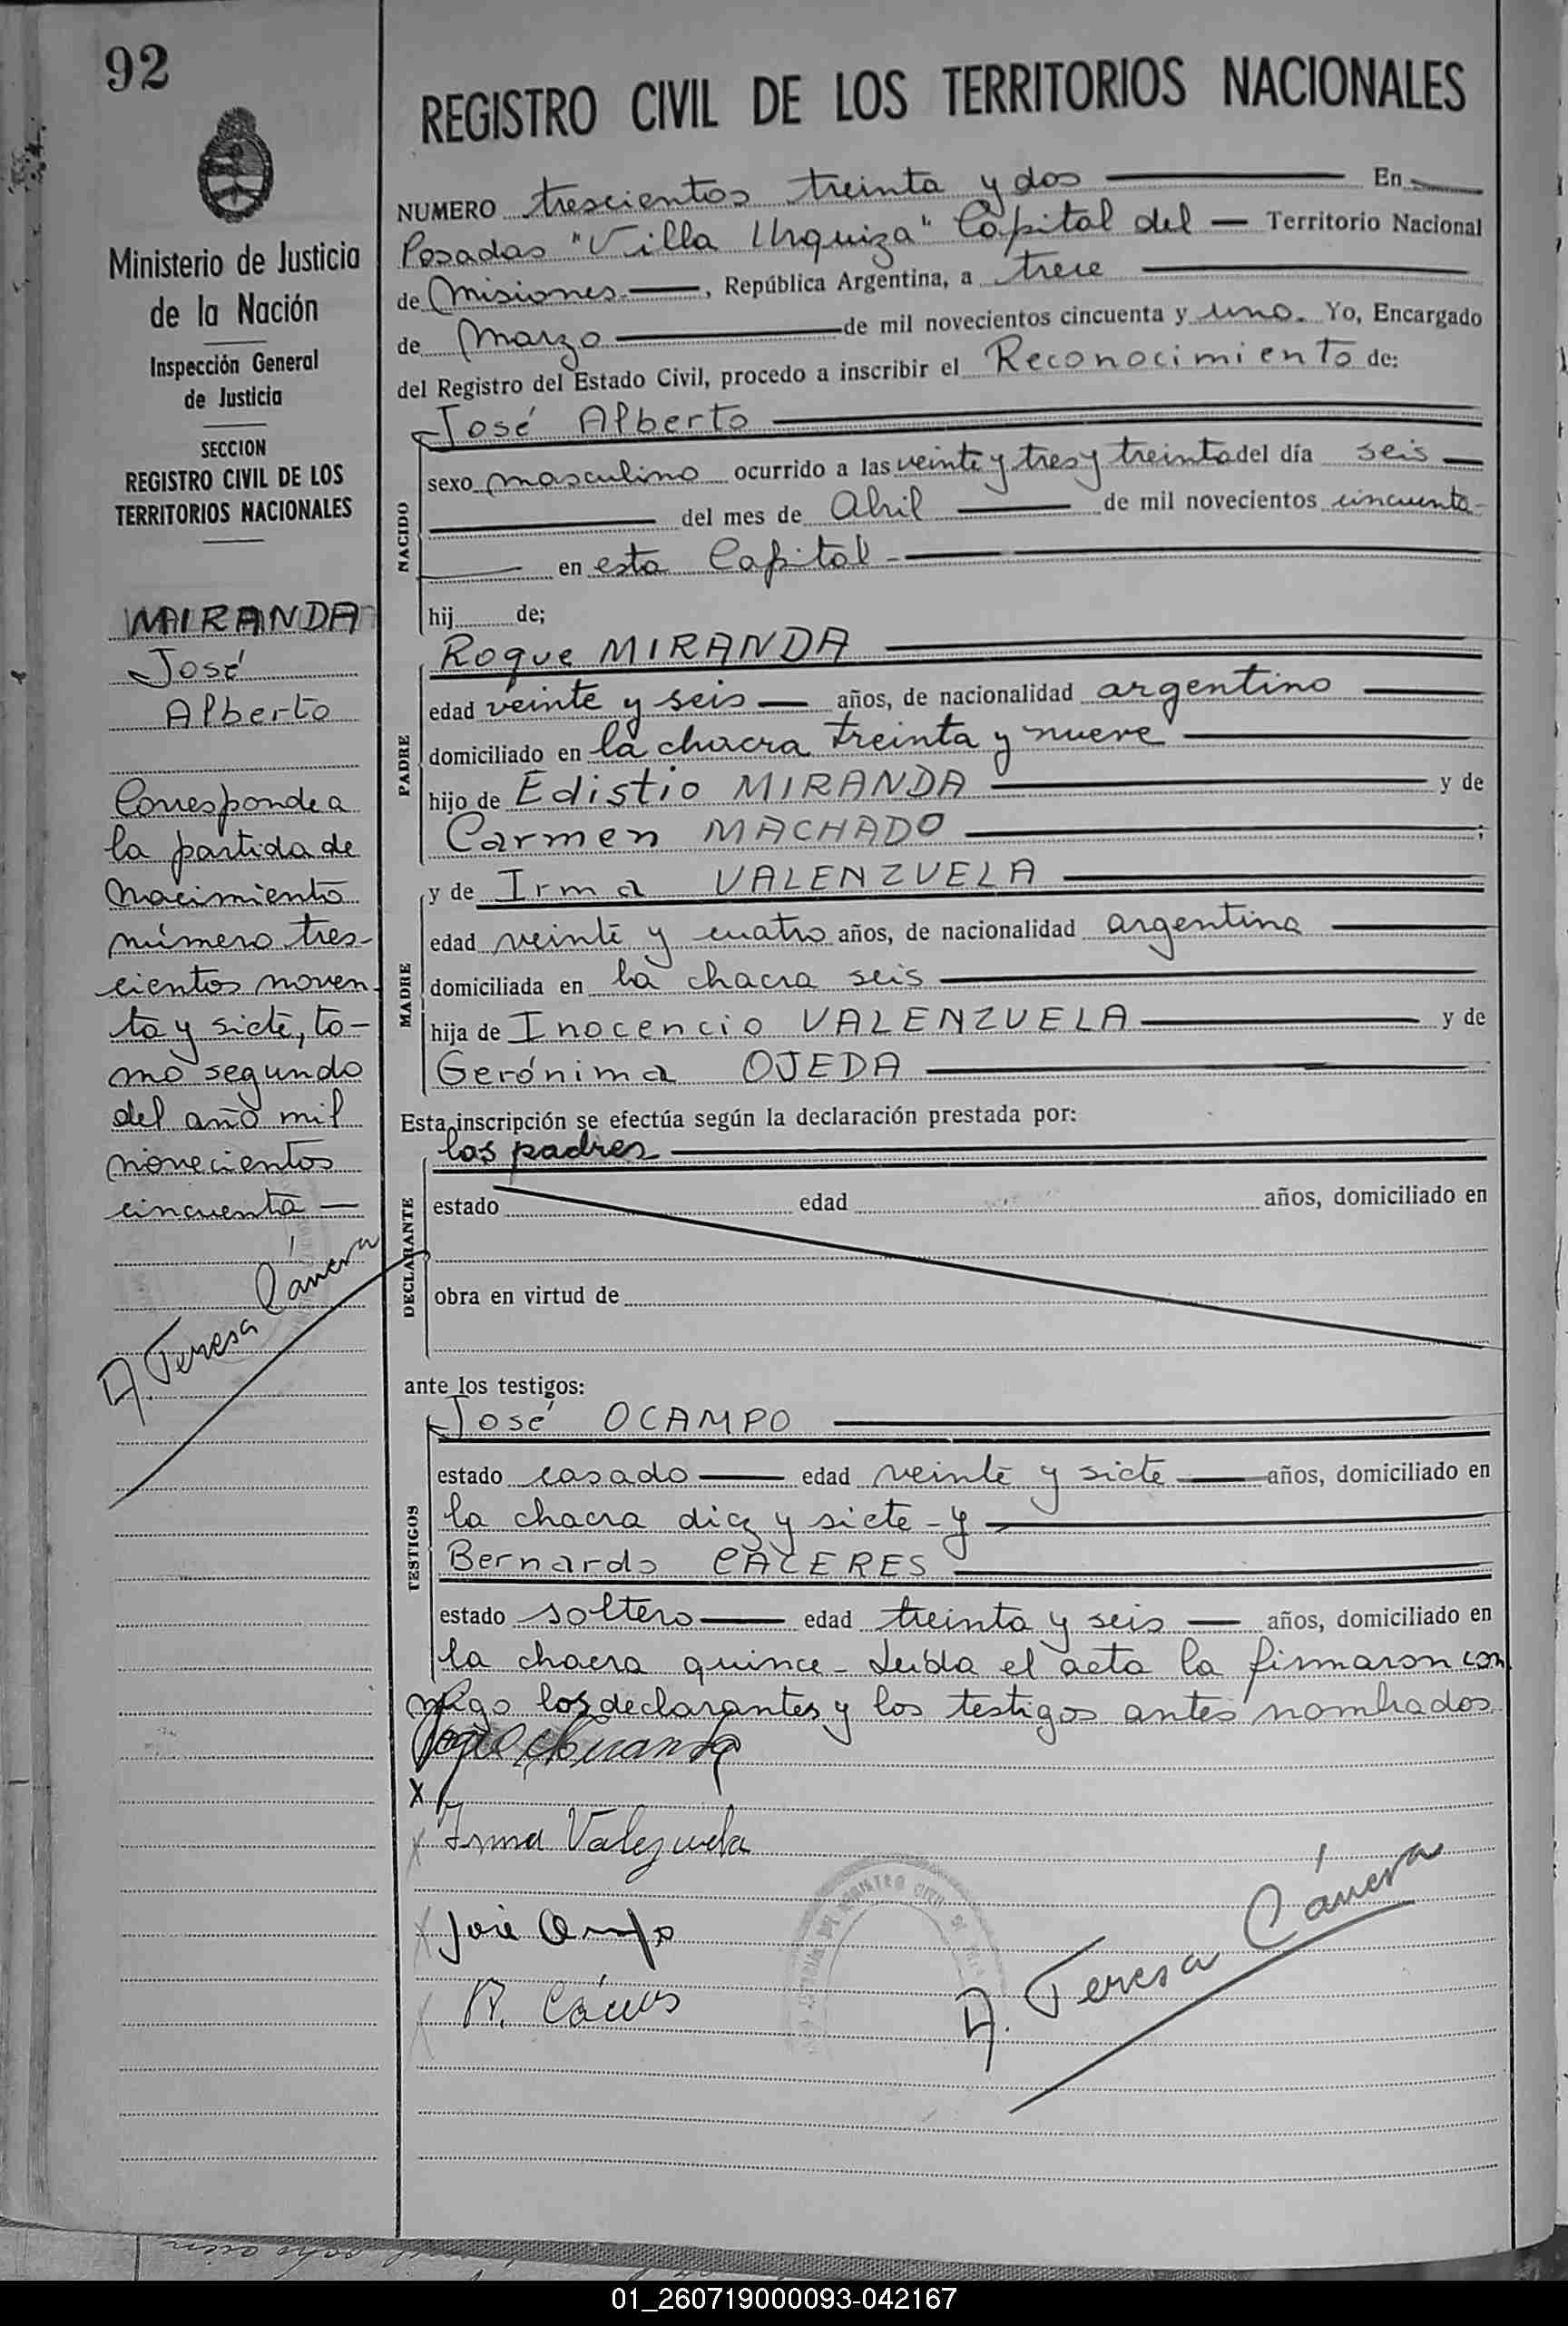 92
REGISTRO CIVIL DE LOS TERRITORIOS NACIONALES
Ministerio de Justicia
de la Nación
Inspección General
de Justicia
SECCION
REGISTRO CIVIL DE LOS
TERRITORIOS NACIONALES
MIRANDA
José
Alberto
Corresponde a
la partida de
nacimiento
número tres-
cientos noven-
ta y siete, to-
mo segundo
del año mil
novecientos
cincuenta —
A. Teresa Cánera
NUMERO trescientos treinta y dos — En —
Posadas "Villa Urquiza" Capital del — Territorio Nacional
de Misiones. —, República Argentina, a trece —
de Marzo — de mil novecientos cincuenta y uno. Yo, Encargado
del Registro del Estado Civil, procedo a inscribir el Reconocimiento de:
José Alberto —
NACIDO
sexo masculino ocurrido a las veinte y tres y treinta del día seis —
— del mes de Abril — de mil novecientos cincuenta-
— en esta Capital —
hij de;
PADRE
Roque MIRANDA —
edad veinte y seis — años, de nacionalidad argentino —
domiciliado en la chacra treinta y nueve —
hijo de Edistio MIRANDA — y de
Carmen MACHADO — ;
MADRE
y de Irma VALENZUELA —
edad veinte y cuatro años, de nacionalidad argentina —
domiciliada en la chacra seis —
hija de Inocencio VALENZUELA — y de
Gerónima OJEDA —
Esta inscripción se efectúa según la declaración prestada por:
DECLARANTE
los padres —
estado edad años, domiciliado en
obra en virtud de
ante los testigos:
TESTIGOS
José OCAMPO —
estado casado — edad veinte y siete — años, domiciliado en
la chacra diez y siete - y —
Bernardo CÁCERES —
estado soltero — edad treinta y seis — años, domiciliado en
la chacra quince - Leída el acta la firmaron con
migo los declarantes y los testigos antes nombrados.
Roque Miranda
x
x Irma Valezuela
x José Ocampo
x B. Cáceres
A. Teresa Cánera
01_260719000093-042167